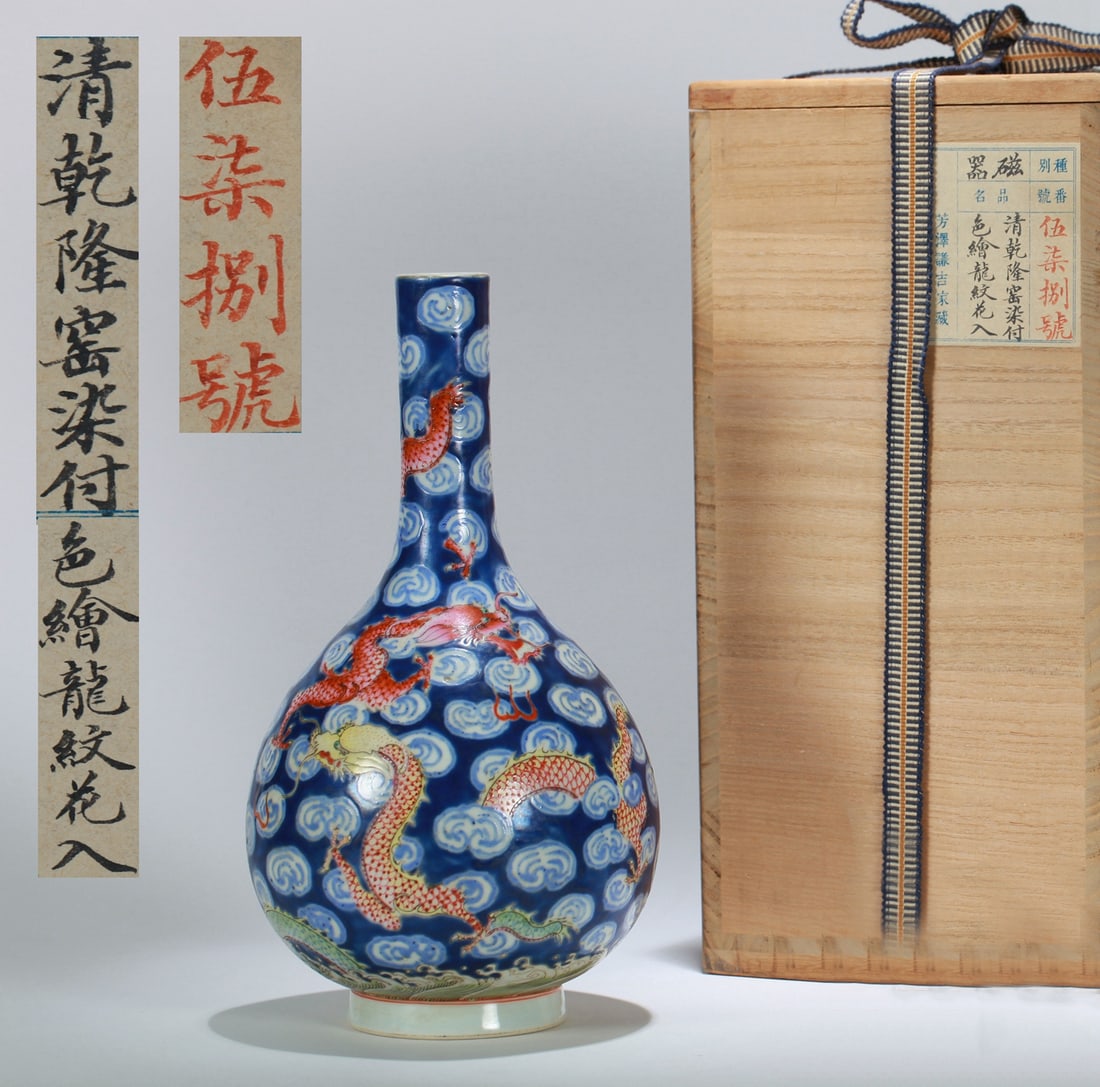 清乾隆窑染付色繪龍紋花入
伍柒捌號
種別
磁器
番號
品名
伍柒捌號
清乾隆窑染付
色繪龍紋花入
芳澤謙吉家蔵